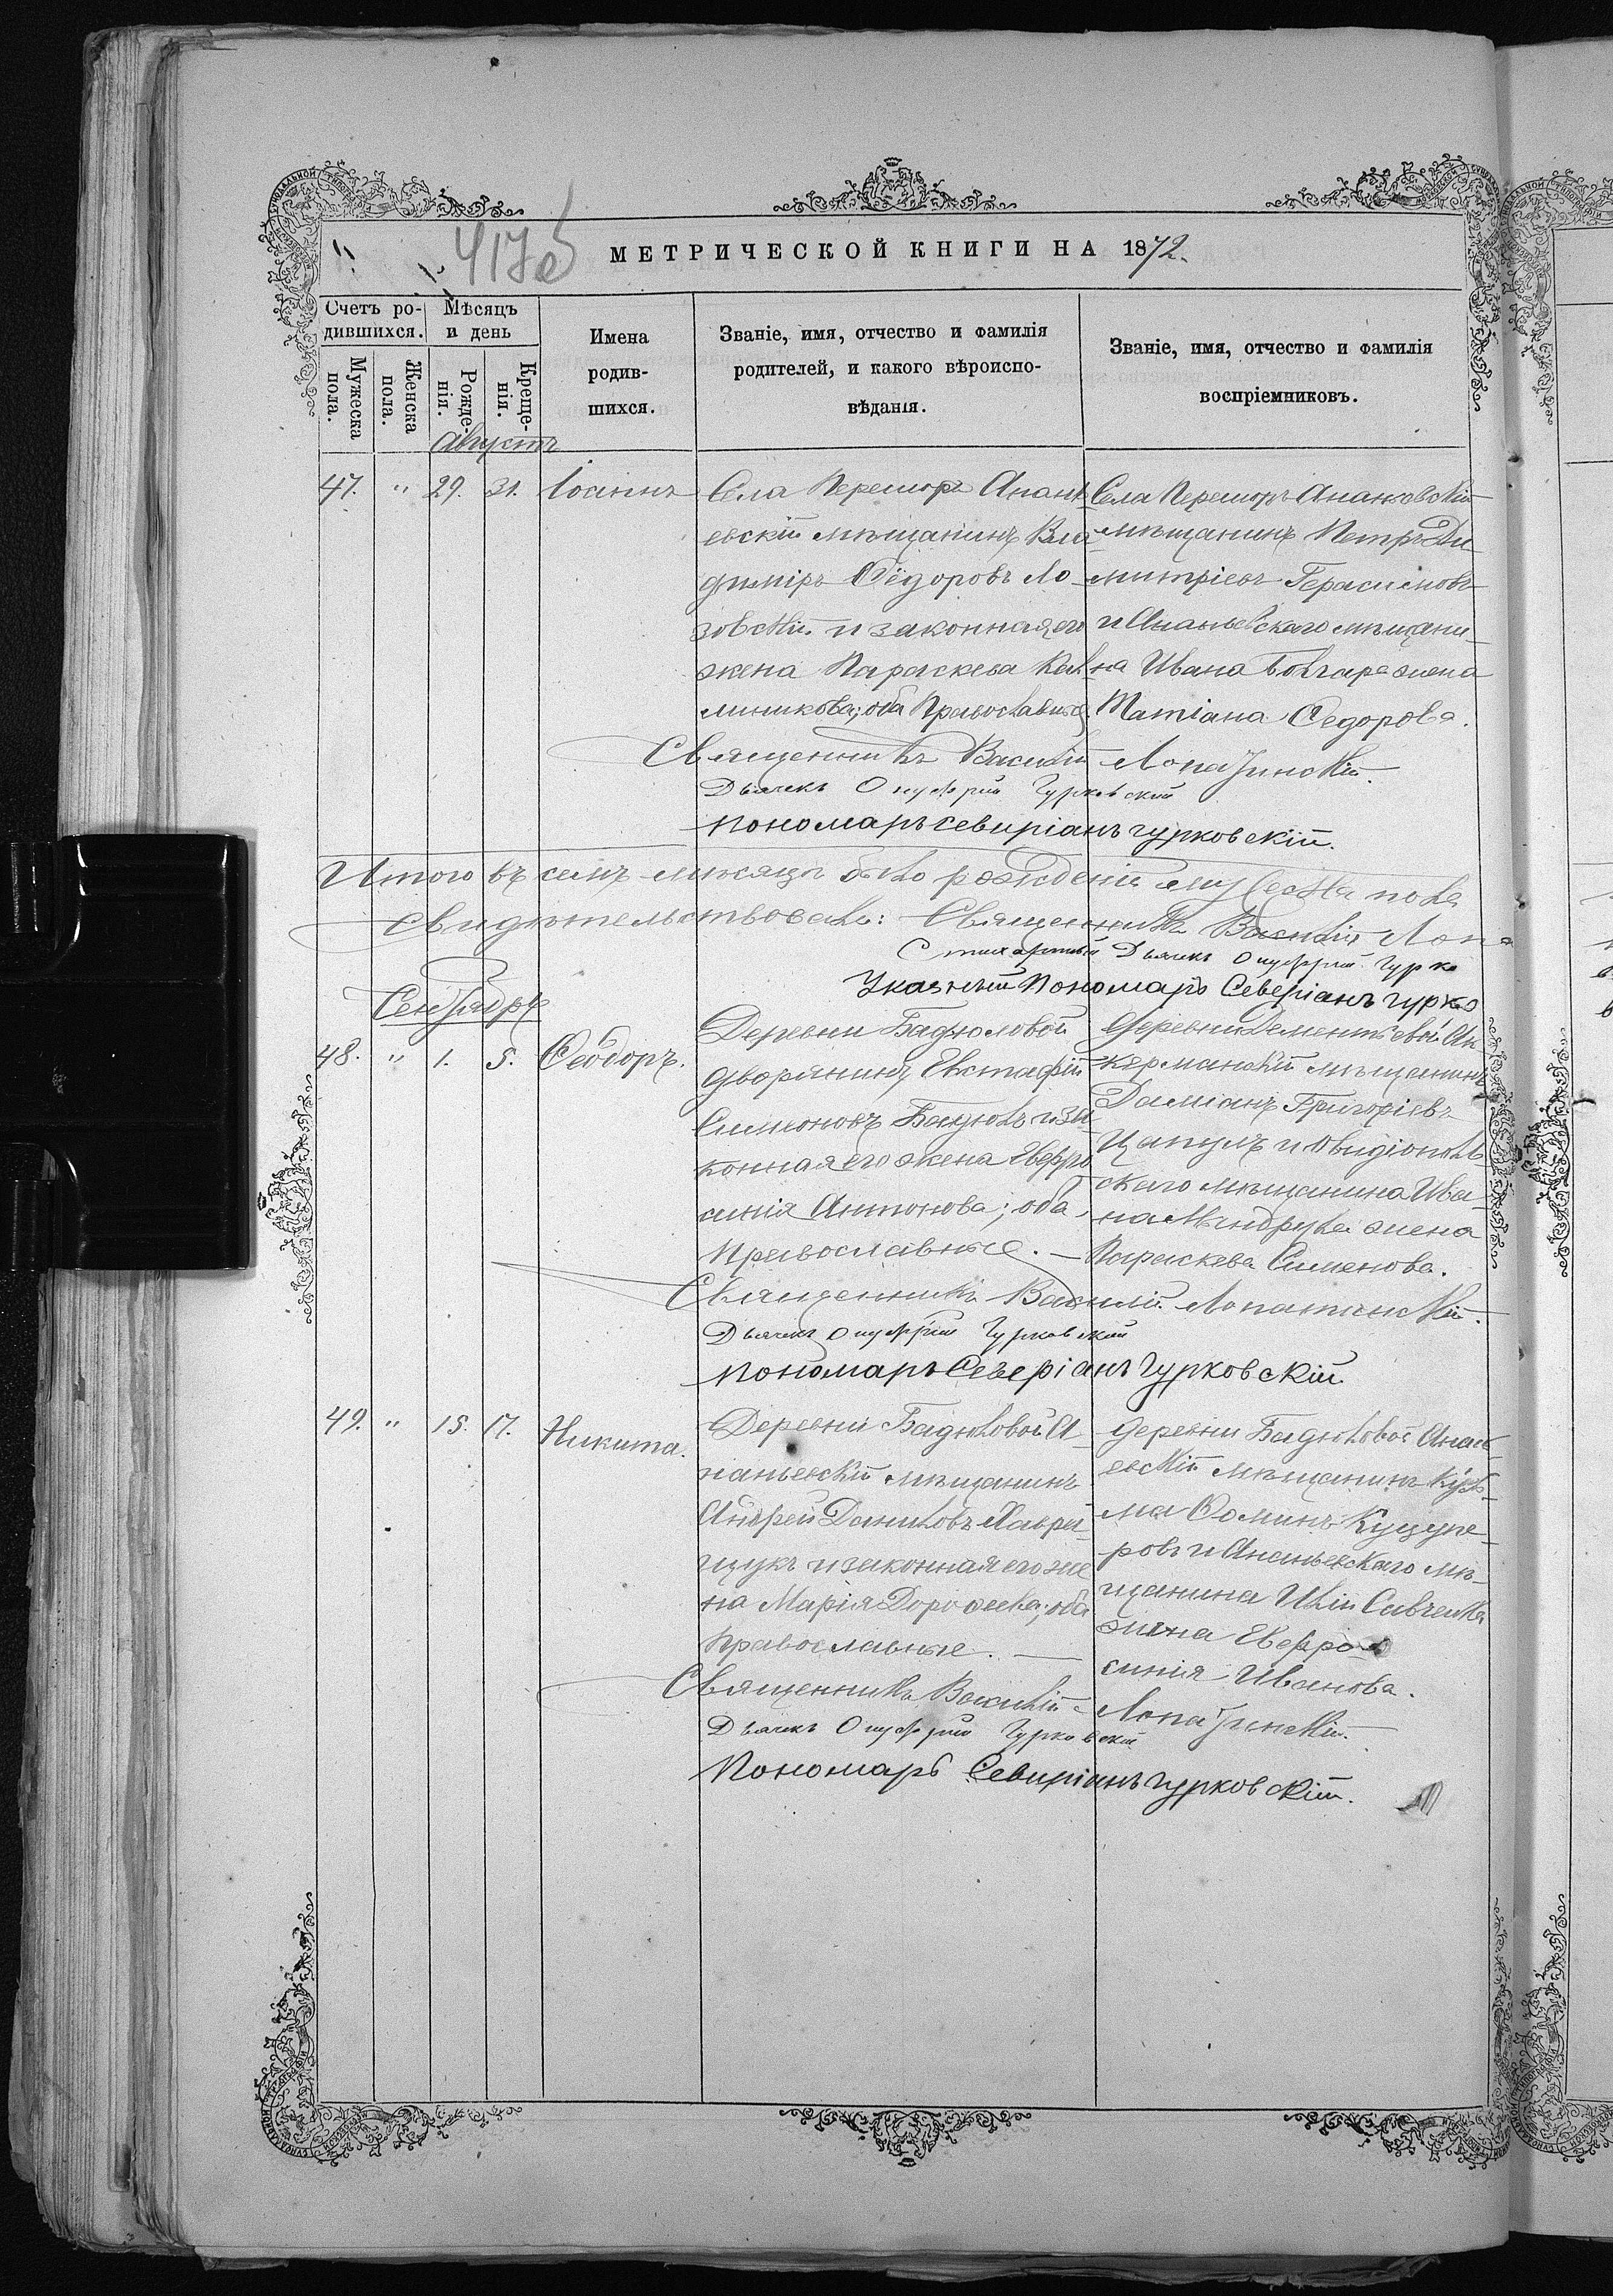 МЕТРИЧЕСКОЙ КНИГИ НА 1872.
Счетъ родившихся.
Мужеска пола.
Женска пола.
Мѣсяцъ и день
Рожденія.
Крещенія.
Имена родившихся.
Званіе, имя, отчество и фамилія
родителей, и какого вѣроиспо-
вѣданія.
Званіе, имя, отчество и фамилія
воспріемниковъ.
Августъ
47. " 29. 31. Іоаннъ
Села Перешоръ Анань
евскій мѣщанинъ Вла-
диміръ Ѳедоровъ Ло-
зовскій и законная его
жена Параскева
оба Православные
Села Перешоръ Ананьевскій
мѣщанинъ Петръ Ди-
митріевъ Герасимовъ
и Ананьевскаго мѣщани-
на Ивана Болгара жена
Татіана Ѳедорова.
Священникъ Василій Лопатинскій.
Дьячекъ Онуфрій Гурковскій
Пономарь Севиріанъ Гурковскій.
Итого въ семъ мѣсяцѣ было рожденій мужеска пола
Свидѣтельствовали: Священникъ Василій Лопа
Стихарный Дьячекъ Онуфрій Гурко
Указный Пономарь Северіанъ Гурко
Сентябрь
48. " 1. 5. Ѳеодоръ.
Деревни Бадюловой
дворянинъ Евстафій
Симеоновъ Бадюлъ и за-
конная его жена Евфро
синія Антонова; оба
Православные.
Деревни Дементьевой Ак
керманскій мѣщанинъ
Даміанъ Григоріевъ
Цапулъ и Овидіополь-
скаго мѣщанина Ива-
на Мындрула жена
Параскева Сименова.
Священникъ Василій Лопатинскій.
Дьячекъ Онуфрій Гурковскій
Пономарь Северіанъ Гурковскій
49. " 15. 17. Никита.
Деревни Бадюловой А-
наньевскій мѣщанинъ
Андрей Даниловъ Хавра-
щукъ и законная его же
на Марія Дорофеева; оба
Православные.
Деревни Бадюловой Анань
евскій мѣщанинъ Кузь-
ма Ѳоминъ Куцупе-
ровъ и Ананьевскаго мѣ-
щанина Иліи Савченка
жена Евфро-
синія Иванова.
Священникъ Василій Лопатинскій.
Дьячекъ Онуфрій Гурковскій
Пономарь Севиріанъ Гурковскій.